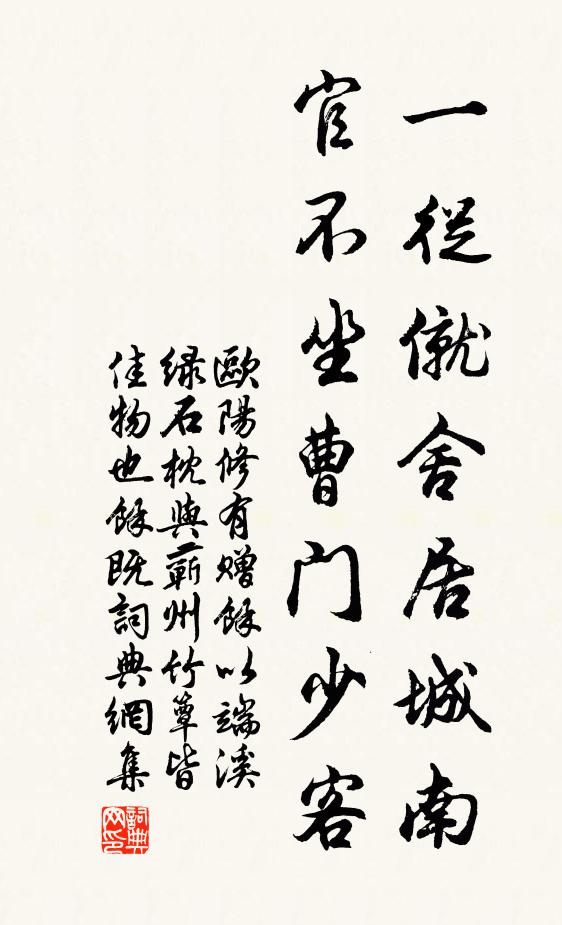 一從僦舍居城南
官不坐曹门少客
歐陽修有贈餘以端溪
绿石枕與蕲州竹簟皆
佳物也餘既詞典網集
詞典
网印